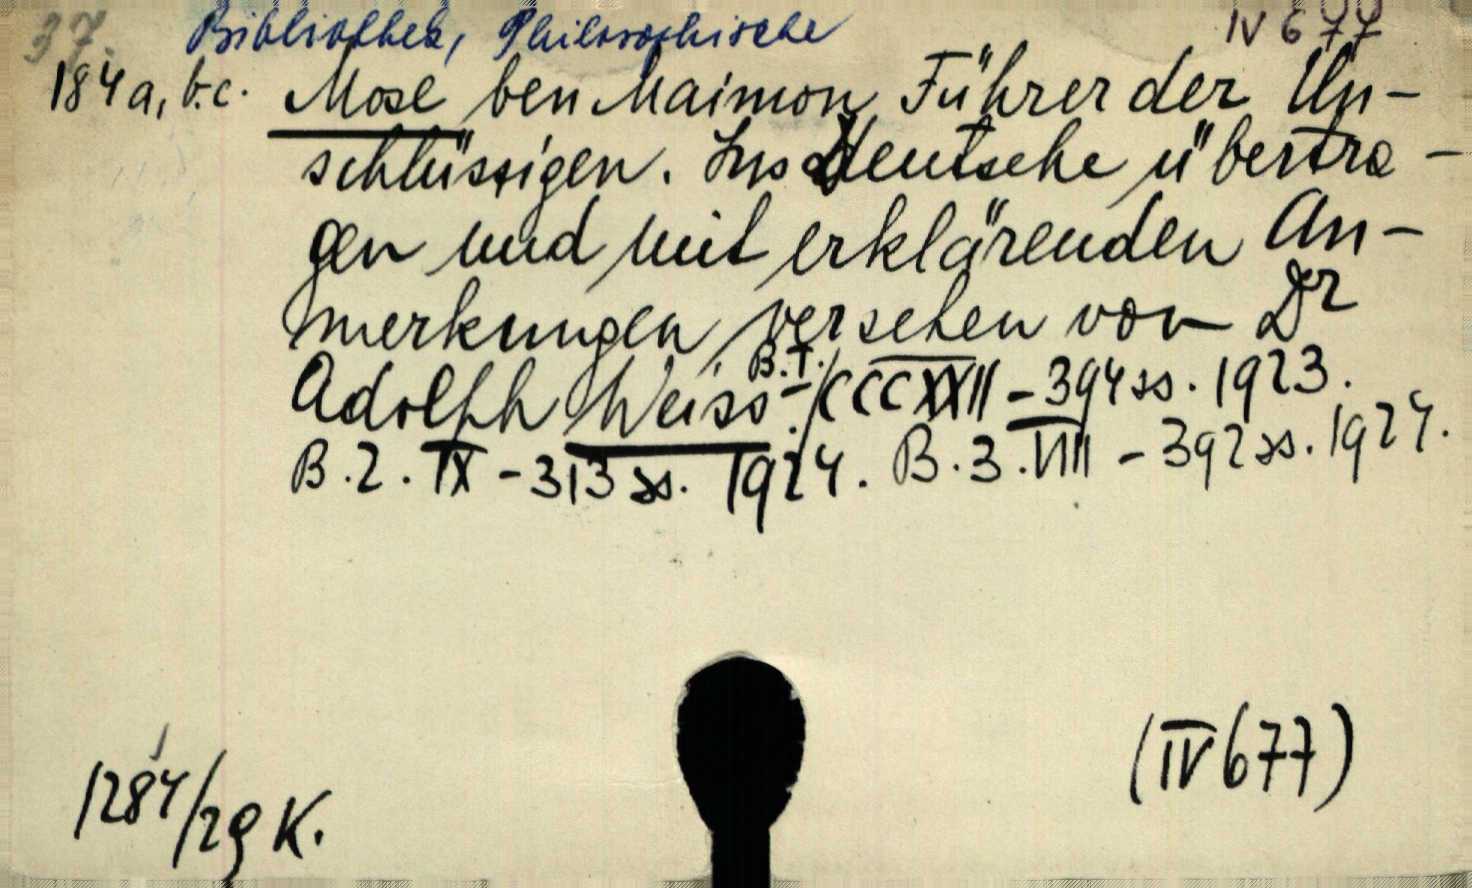 37. Bibliothek, Philosophische IV 677
184a, b.c. Mose ben Maimon, Führer der Un-
schlüssigen. Ins deutsche übertra-
gen und mit erklärenden An-
merkungen versehen von Dr
Adolph Weiss. B.I. - CCCXXII - 394 ss. 1923.
B.2. IX - 313 ss. 1924. B.3. VIII - 392 ss. 1924.
(IV 677)
1284/29 K.